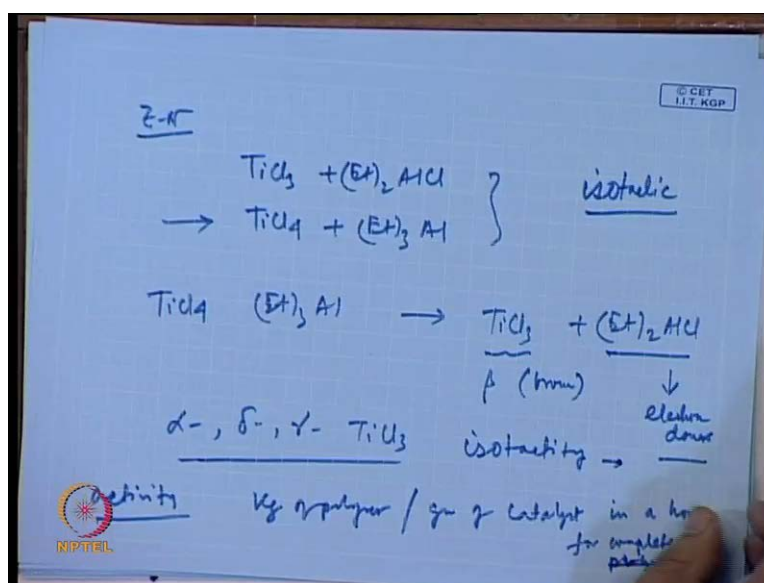 © CET
I.I.T. KGP
Z-N
TiCl3 + (Et)2 AlCl
→ TiCl4 + (Et)3 Al } isotactic
TiCl4 (Et)3 Al → TiCl3 + (Et)2 AlCl
β (brown) ↓
electron
donor
α-, δ-, γ- TiCl3 isotactity →
activity Kg of polymer / gm of catalyst in a
for complete
NPTEL